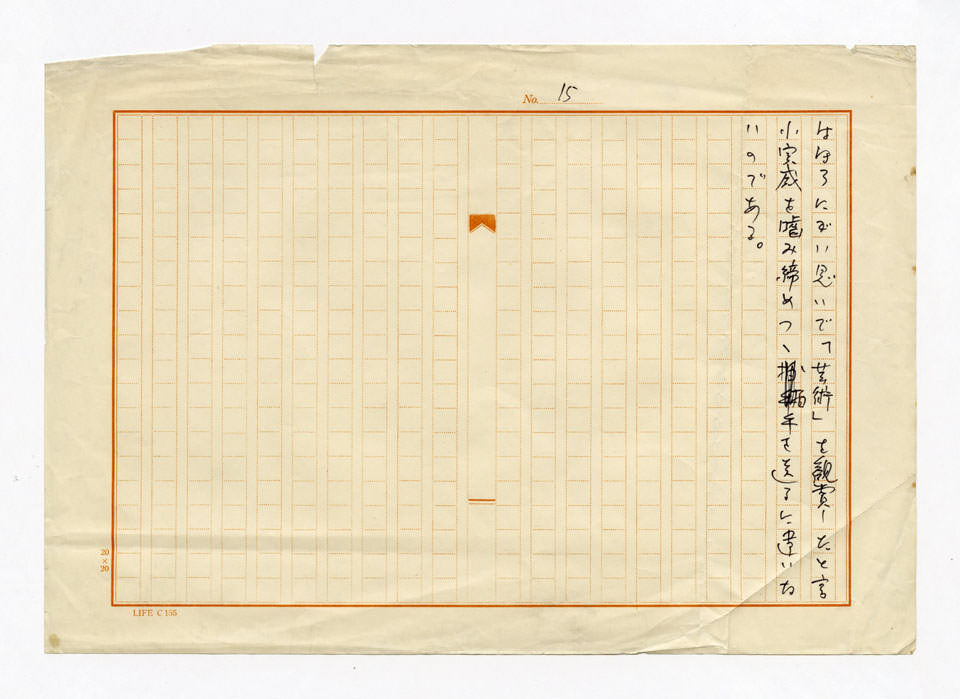 No. 15
はほろにがい思いで「芸術」を観賞したと言
ふ実感を噛み締めつゝ拍手を送るに違いな
いのである。
20×20
LIFE C 155